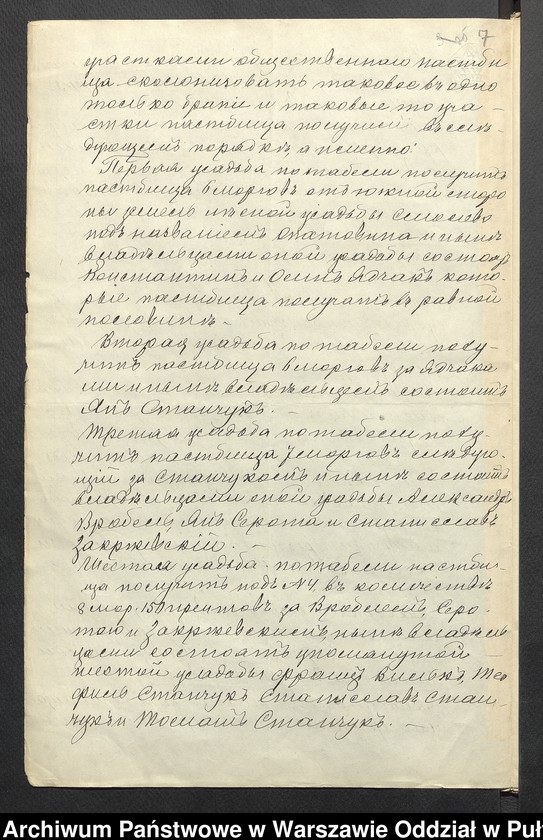 7
участками общественнаго пастби
ща скомоничовать таковое въ одно
только брапіе и таковые то уча-
стки пастбища получили въ слѣ-
дующемъ порядкѣ, а именно:
Первая усадьба по табели получитъ
пастбища 6 морговъ отъ южной сторо
ны земель лѣсной усадьбы
подъ названіемъ и нынѣ
владѣльцами оной усадьбы состоятъ
Константинъ и Осипъ Ядчакъ кото-
рые пастбища получатъ въ равной
половинѣ. -
Вторая усадьба по табели полу-
читъ пастбища 6 морговъ за Ядчака
ми и нынѣ владѣльцемъ состоитъ
Янъ Станчукъ. -
Третая усадьба по табели полу-
читъ пастбища 7 морговъ слѣдую-
щій за Станчукомъ и нынѣ состоятъ
владѣльцами оной усадьбы Александръ
Врубель, Янъ Серота и Станиславъ
Закржевскій. -
Шестая усадьба по табели пастби-
ща получитъ подъ №4, въ количествѣ
8 мор. 150 прентовъ за Врублемъ, Серо-
тою и Закржевскимъ, нынѣ владѣль
цами состоятъ упомянутой
шестой усадьбы Францъ Вилькъ, Тео
филь Станчукъ Станиславъ Стан-
чукъ и Томашъ Станчукъ. -
Archiwum Państwowe w Warszawie Oddział w Puł